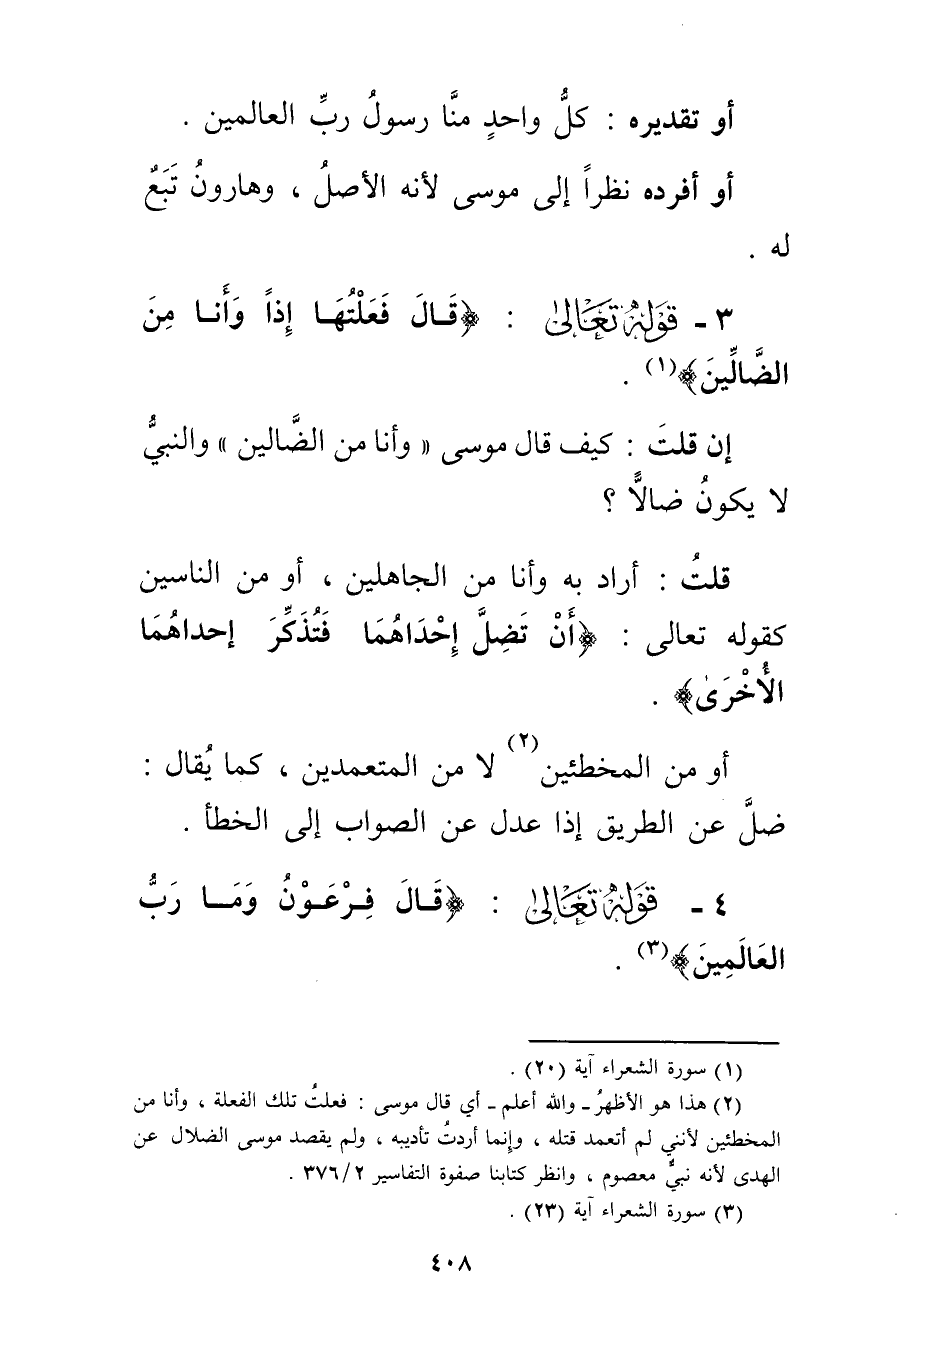 أو تقديره : كلُّ واحدٍ منَّا رسولُ ربِّ العالمين .
أو أفرده نظراً إلى موسى لأنه الأصلُ ، وهارونُ تَبَعٌ
له .
٣ ـ قَوْلُهُ تَعَالَىٰ : ﴿قَـالَ فَعَلْتُهَـا إِذاً وَأَنـا مِنَ
الضَّالِّينَ﴾(١) .
إن قلتَ : كيف قال موسى « وأنا من الضَّالين » والنبيُّ
لا يكونُ ضالاًّ ؟
قلتُ : أراد به وأنا من الجاهلين ، أو من الناسين
كقوله تعالى : ﴿أَنْ تَضِلَّ إِحْدَاهُمَا فَتُذَكِّرَ إحداهُمَا
الأُخْرَىٰ﴾ .
أو من المخطئين(٢) لا من المتعمدين ، كما يُقال :
ضلَّ عن الطريق إذا عدل عن الصواب إلى الخطأ .
٤ ـ قَوْلُهُ تَعَالَىٰ : ﴿قَـالَ فِـرْعَـوْنُ وَمَـا رَبُّ
العَالَمِينَ﴾(٣) .
(١) سورة الشعراء آية (٢٠) .
(٢) هذا هو الأظهرُ ـ والله أعلم ـ أي قال موسى : فعلتُ تلك الفعلة ، وأنا من
المخطئين لأنني لم أتعمد قتله ، وإنما أردتُ تأديبه ، ولم يقصد موسى الضلال عن
الهدى لأنه نبيٌّ معصوم ، وانظر كتابنا صفوة التفاسير ٣٧٦/٢ .
(٣) سورة الشعراء آية (٢٣) .
٤٠٨